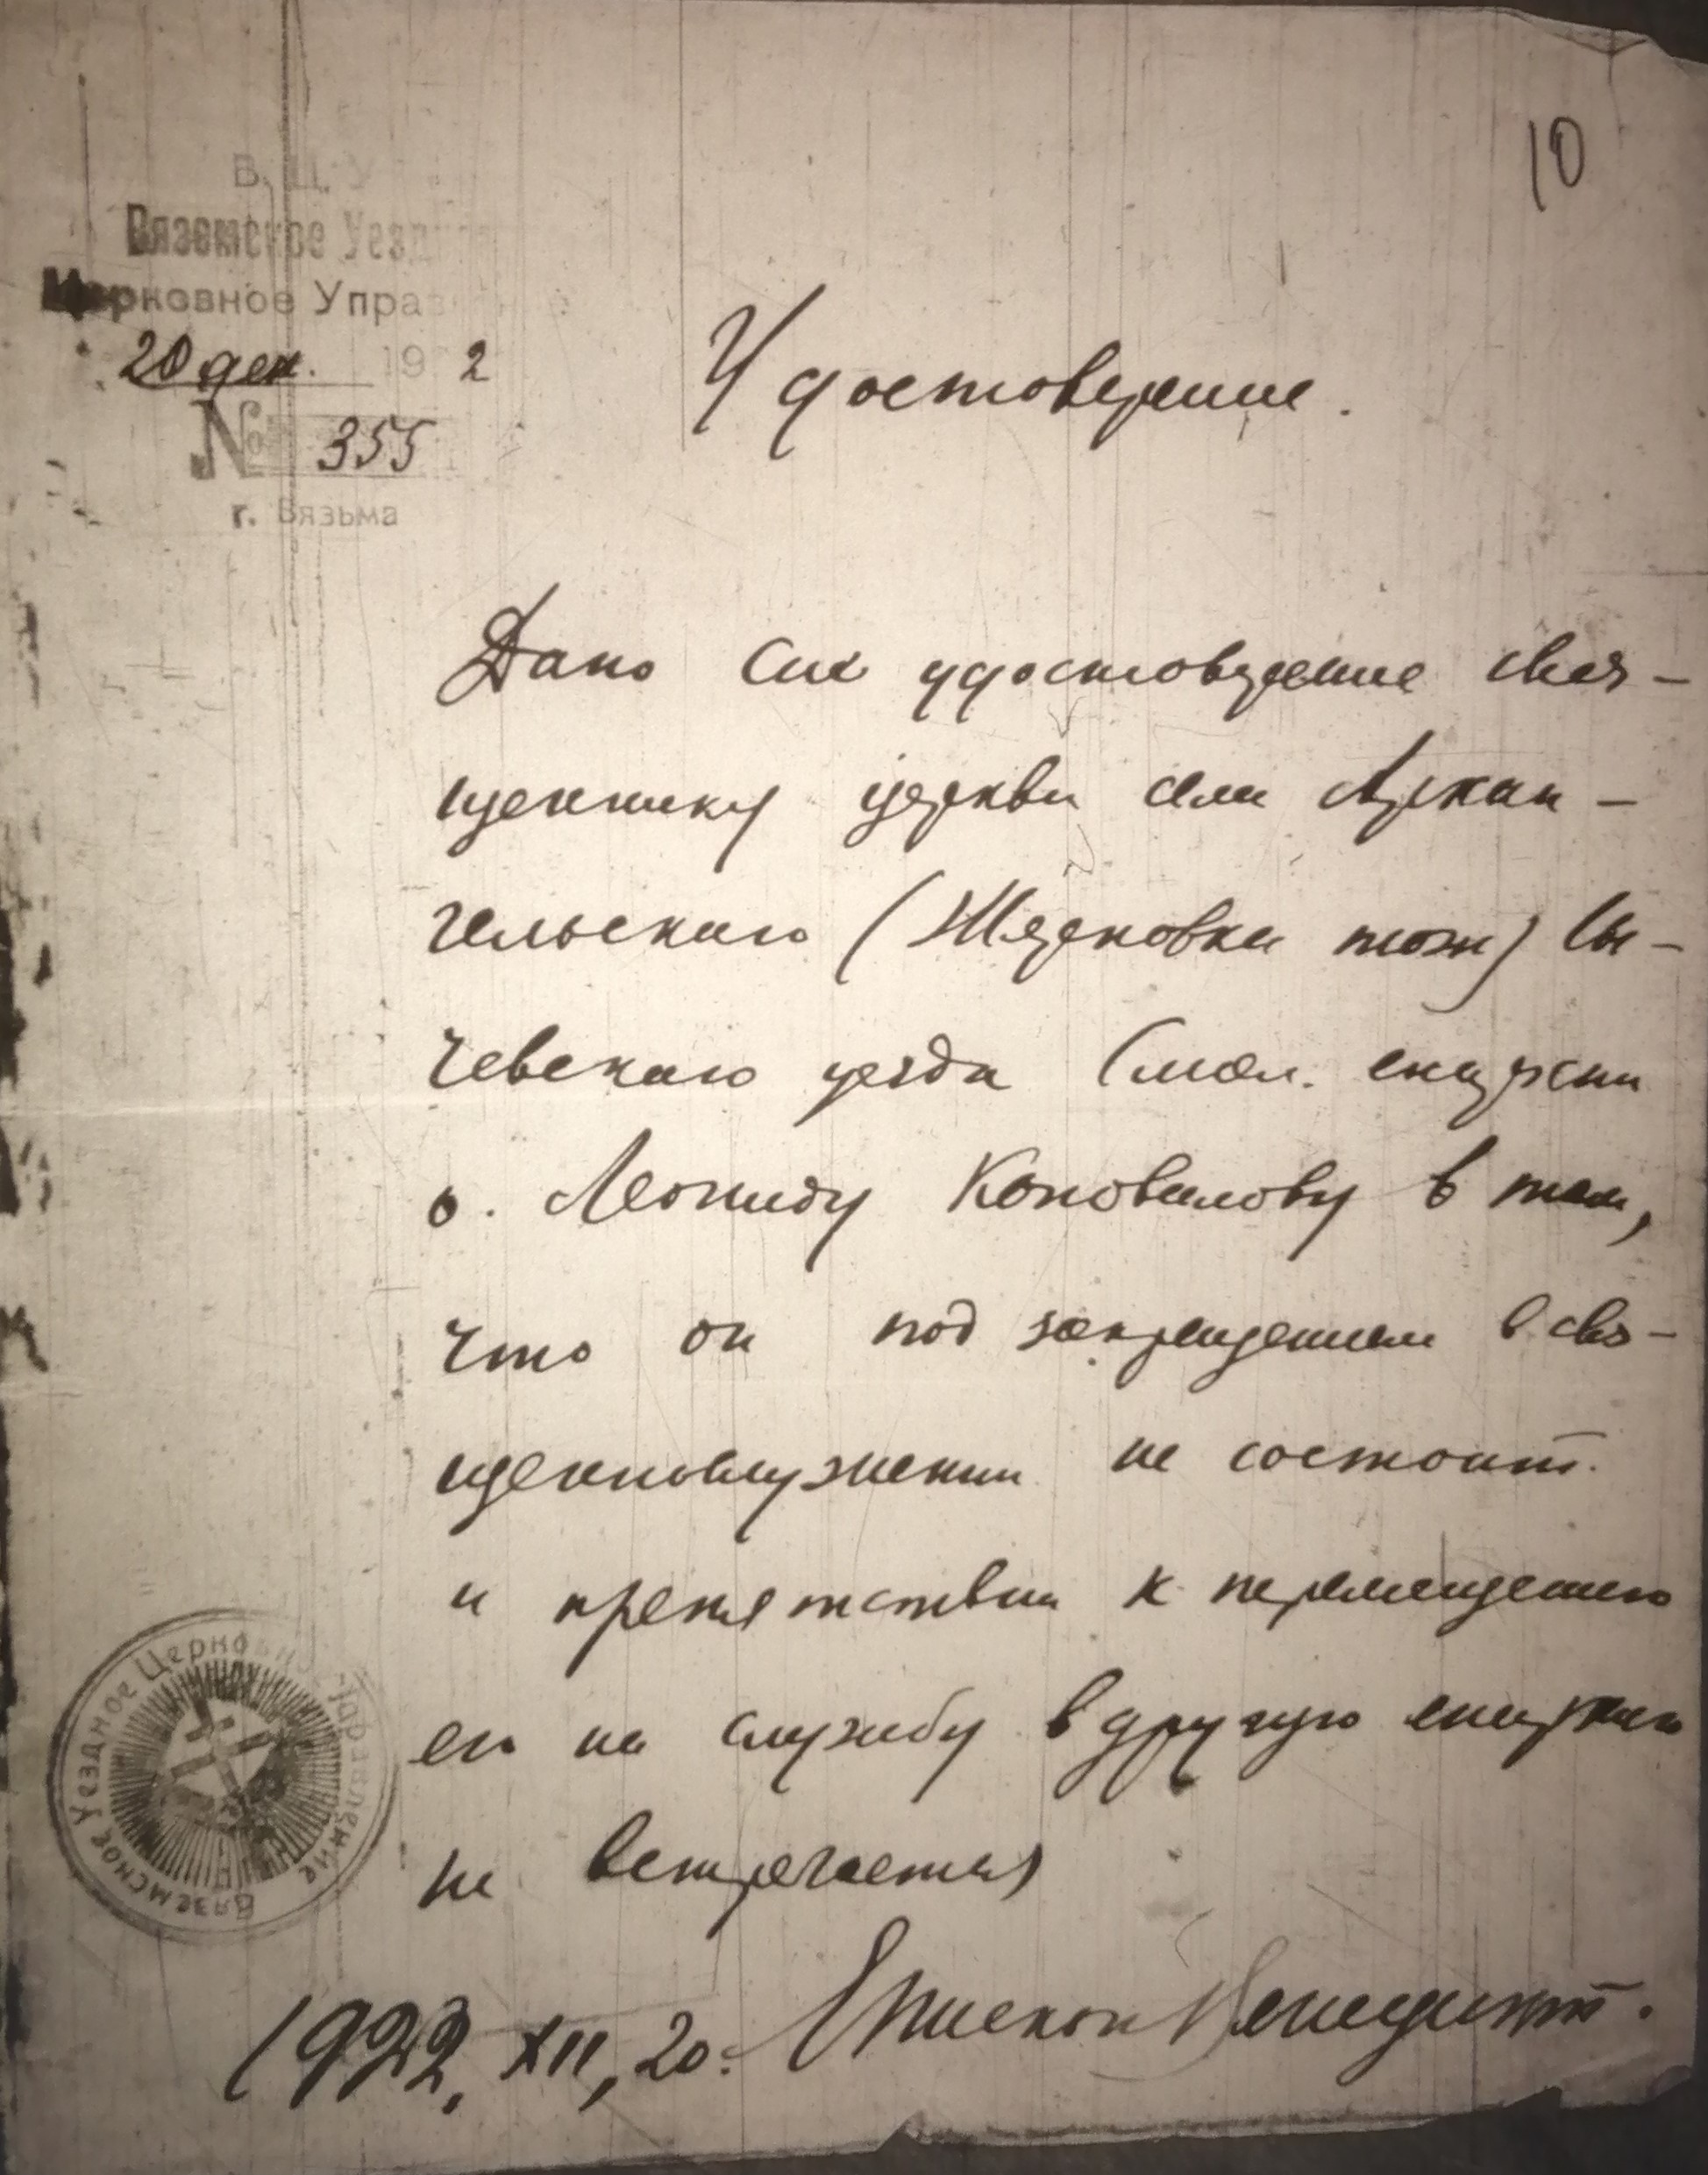 10
В. Ц. У
Вяземское Уезд
Церковное Управ
20 дек. 1922
№ 355
г. Вязьма
Удостоверение.
Дано сие удостоверение свя-
щеннику церкви села Архан-
гельскаго (Жерновка тож) Сы-
чевскаго уезда Смол. епархии
о. Леониду Коновалову в том,
что он под запрещением в свя-
щеннослужении не состоит
и препятствия к перемещению
его на службу в другую епархию
не встречается
1922, XII, 20. Епископ Венедикт.
Вяземское Уездное Церковное Управление